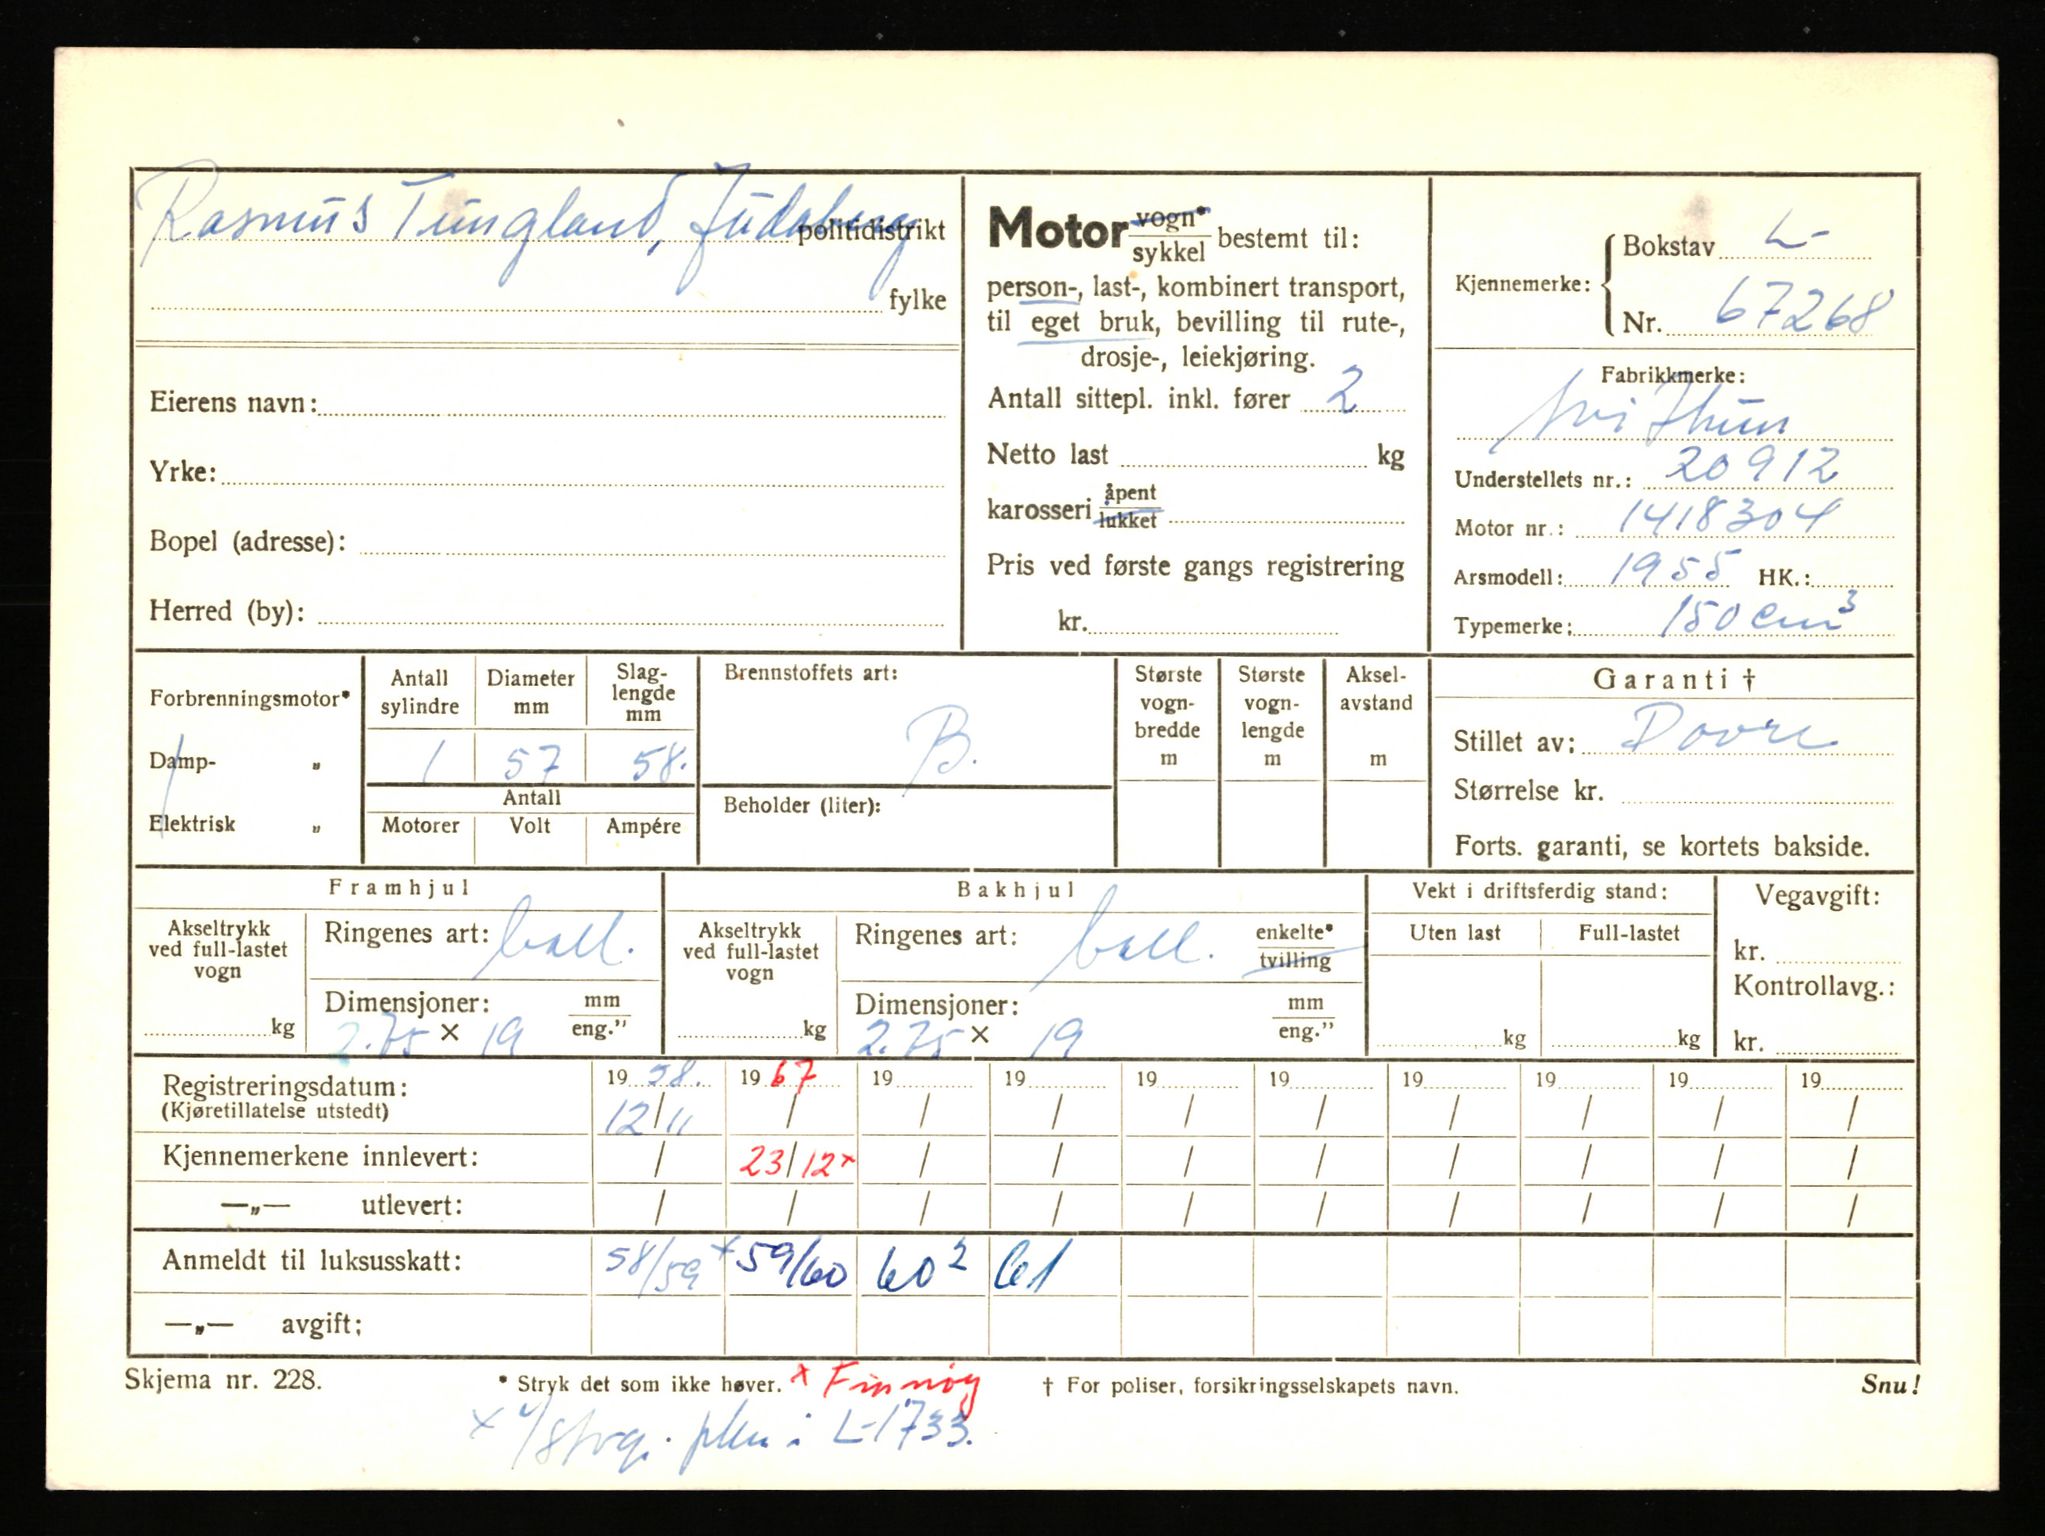 Rasmus Tungland, Judaberg politidistrikt
fylke
Eierens navn:
Yrke:
Bopel (adresse):
Herred (by):
Motor vogn* sykkel bestemt til:
person-, last-, kombinert transport,
til eget bruk, bevilling til rute-,
drosje-, leiekjøring.
Antall sittepl. inkl. fører 2
Netto last kg
karosseri åpent lukket
Pris ved første gangs registrering
kr.
Kjennemerke: Bokstav L-
Nr. 67268
Fabrikkmerke:
Svithun
Understellets nr.: 20912
Motor nr.: 1418304
Arsmodell: 1955 HK.:
Typemerke: 150 cm³
Forbrenningsmotor*
Damp- „
Elektrisk „
Antall sylindre
Diameter mm
Slag-lengde mm
1 57 58.
Antall
Motorer Volt Ampére
Brennstoffets art:
B.
Beholder (liter):
Største vogn-bredde m
Største vogn-lengde m
Aksel-avstand m
Garanti †
Stillet av: Dovre
Størrelse kr.
Forts. garanti, se kortets bakside.
Framhjul
Akseltrykk ved full-lastet vogn
kg
Ringenes art: ball.
Dimensjoner: mm eng."
2.75 × 19
Bakhjul
Akseltrykk ved full-lastet vogn
kg
Ringenes art: ball. enkelte* tvilling
Dimensjoner: mm eng."
2.75 × 19
Vekt i driftsferdig stand:
Uten last Full-lastet
kg kg
Vegavgift:
kr.
Kontrollavg.:
kr.
Registreringsdatum: 1958. 1967 19 19 19 19 19 19 19 19
(Kjøretillatelse utstedt) 12/11 / / / / / / / / /
Kjennemerkene innlevert: / 23/12× / / / / / / / /
—„— utlevert: / / / / / / / / / /
Anmeldt til luksusskatt: 58/59× 59/60 60² 61
—„— avgift;
Skjema nr. 228. * Stryk det som ikke høver. × Finnøy † For poliser, forsikringsselskapets navn. Snu!
i L-1733.